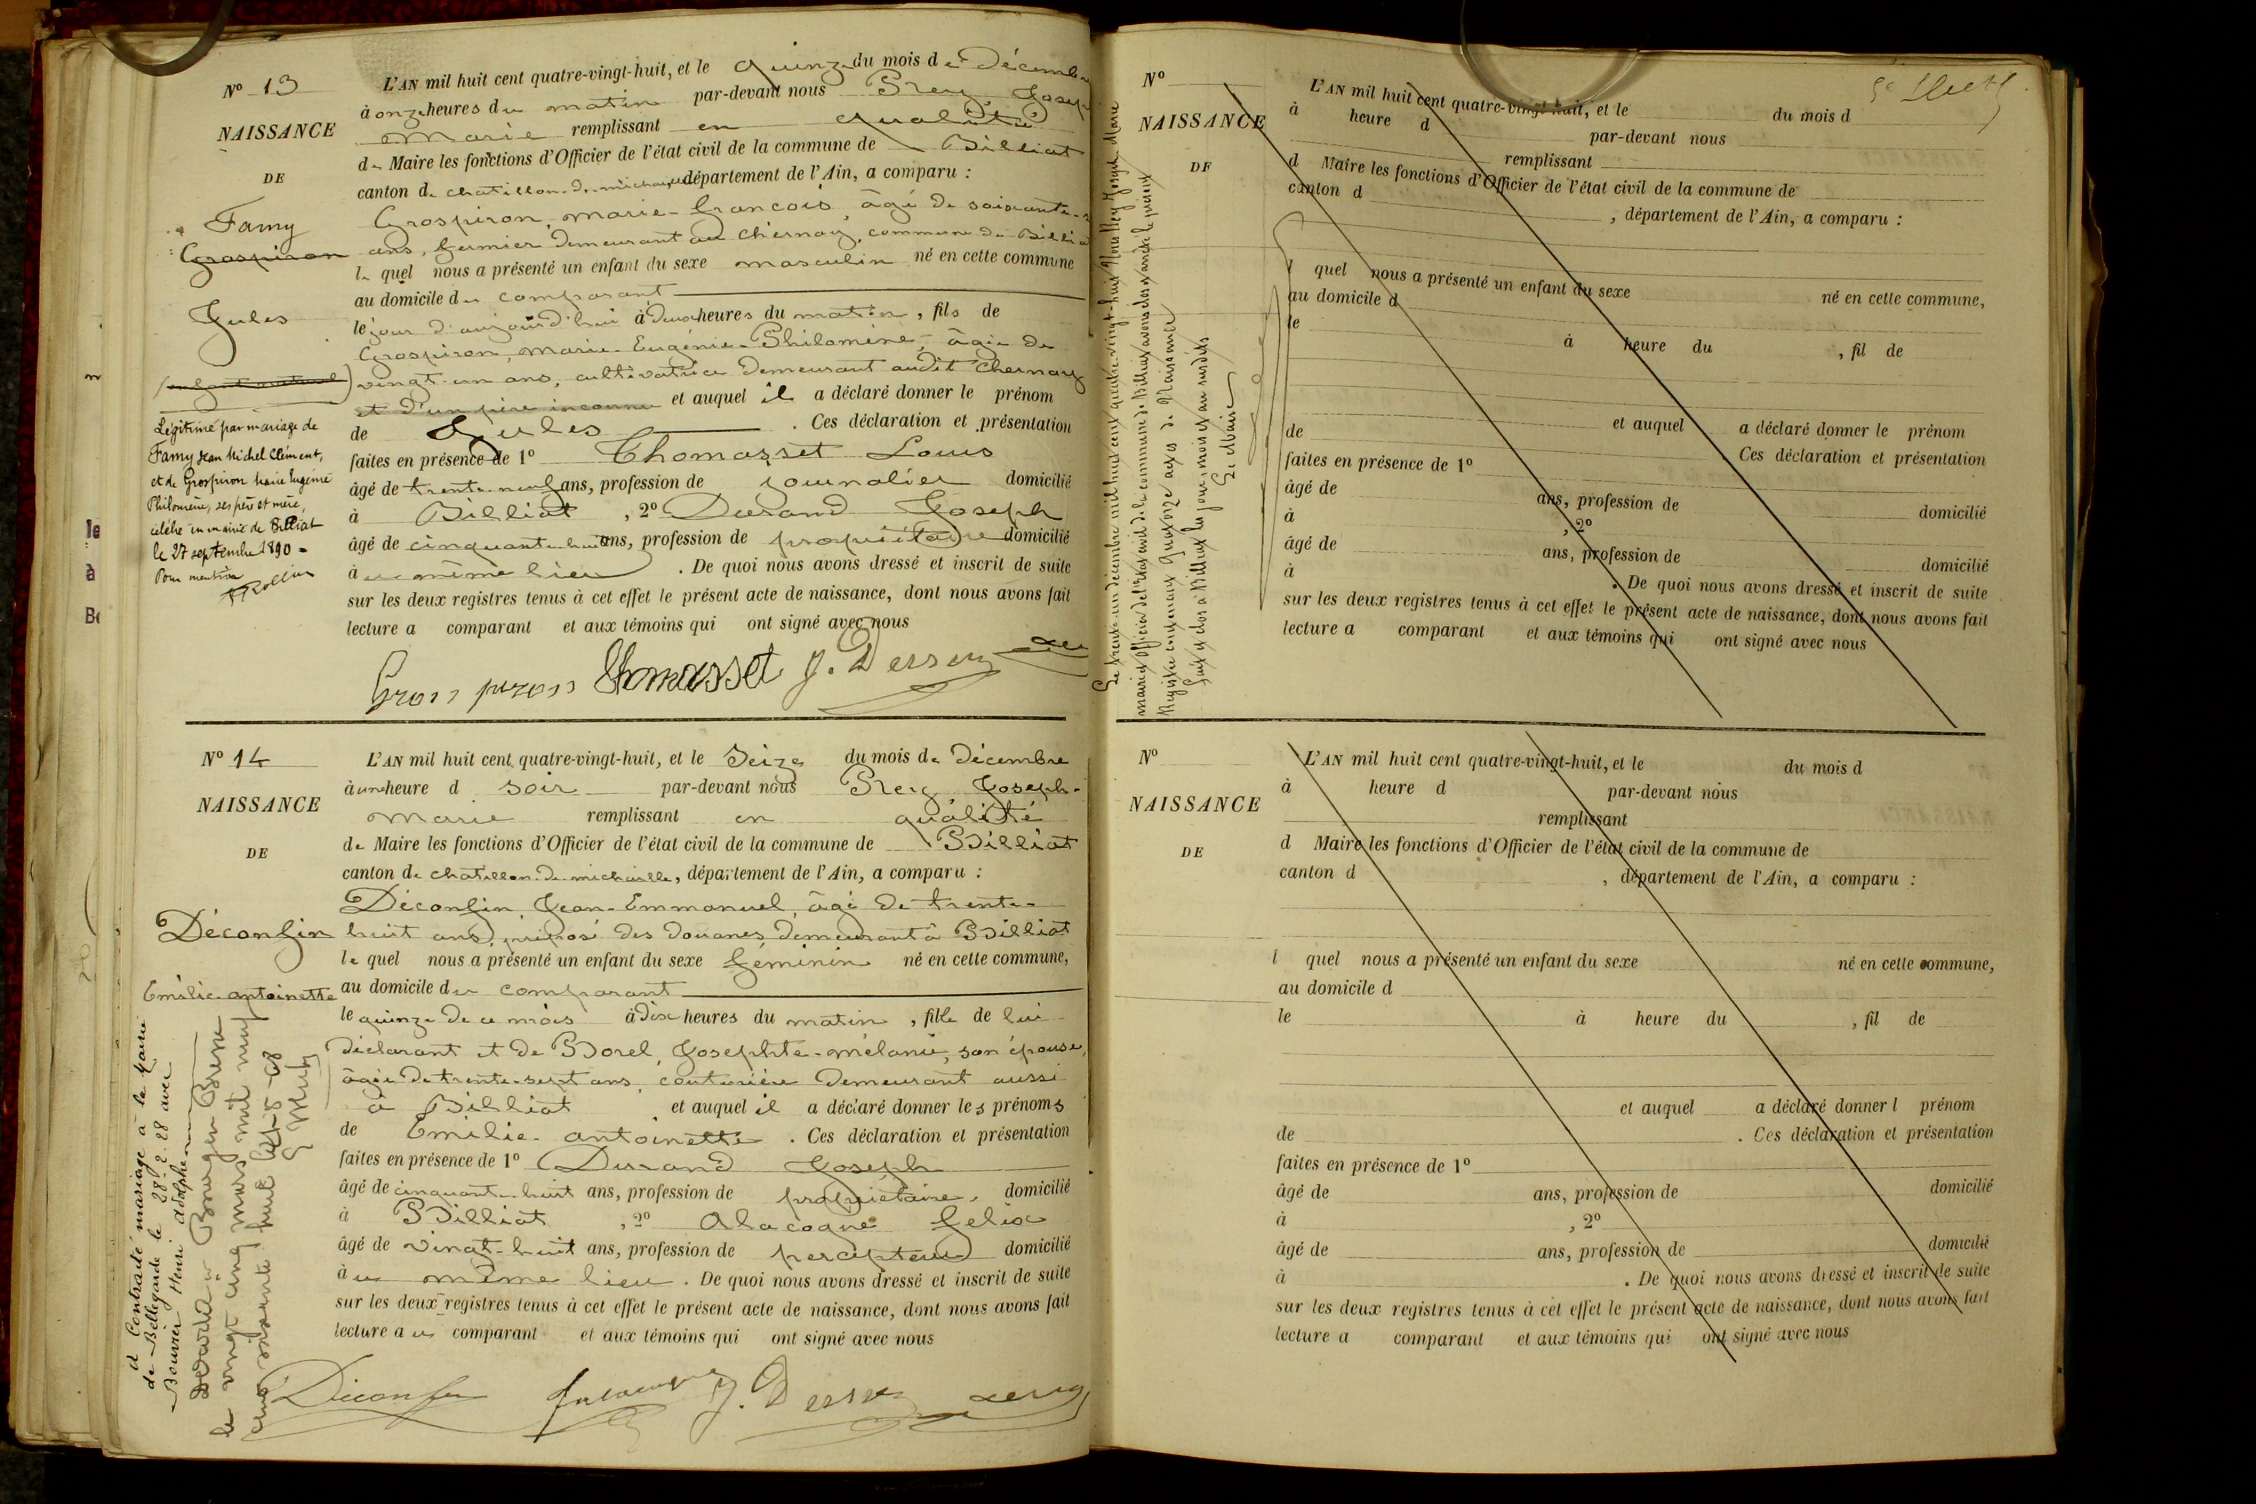 N° 13
NAISSANCE
DE
Famy
Grospiron
Jules
(enfant naturel)
Légitimé par mariage de
Famy Jean Michel Clément,
et de Grospiron Marie Eugénie
Philomène, ses père et mère,
célébré en mairie de Billiat
le 27 septembre 1890 =
Pour mention
L'AN mil huit cent quatre-vingt-huit, et le quinze du mois de Décembre
à onze heures du matin par-devant nous Rey Joseph
Marie remplissant en qualité
de Maire les fonctions d'Officier de l'état civil de la commune de Billiat
canton de chatillon-de-michaille, département de l'Ain, a comparu :
Grospiron, marie-françois, âgé de soixante-
ans, fermier demeurant au chernay, commune de Billiat
lequel nous a présenté un enfant du sexe masculin né en cette commune
au domicile du comparant
le jour d'aujourd'hui à deux heures du matin, fils de
Grospiron, marie-Eugénie-Philomène, âgée de
vingt-un ans, cultivatrice demeurant audit chernay
et d'un père inconnu et auquel il a déclaré donner le prénom
de Jules . Ces déclaration et présentation
faites en présence de 1° Thomasset Louis
âgé de trente-neuf ans, profession de journalier domicilié
à Billiat, 2° Durand Joseph
âgé de cinquante-huit ans, profession de propriétaire domicilié
à un même lieu . De quoi nous avons dressé et inscrit de suite
sur les deux registres tenus à cet effet le présent acte de naissance, dont nous avons fait
lecture a comparant et aux témoins qui ont signé avec nous
Thomasset
N° 14
NAISSANCE
DE
Déconfin
Emilie-antoinette
d Contracté mariage à la Mairie
de Bellegarde le 28-2-28 avec
Bouvier Henri Adolphe
Décédée à Bourg en Bresse
le vingt cinq mars mil neuf
cent soixante huit
L'AN mil huit cent quatre-vingt-huit, et le Seize du mois de Décembre
à une heure d soir par-devant nous Rey Joseph-
Marie remplissant en qualité
de Maire les fonctions d'Officier de l'état civil de la commune de Billiat
canton de chatillon-de-michaille, département de l'Ain, a comparu :
Déconfin, Jean-Emmanuel, âgé de trente-
huit ans, préposé des douanes demeurant à Billiat
lequel nous a présenté un enfant du sexe féminin né en cette commune,
au domicile du comparant
le quinze de ce mois à dix heures du matin, fille de lui
déclarant et de Borel, Josephte-mélanie, son épouse,
âgée de trente-sept ans, couturière demeurant aussi
à Billiat et auquel il a déclaré donner les prénoms
de Emilie-antoinette . Ces déclaration et présentation
faites en présence de 1° Durand Joseph
âgé de cinquante-huit ans, profession de propriétaire, domicilié
à Billiat, 2° Alacogne felix
âgé de vingt-huit ans, profession de percepteur domicilié
à un même lieu . De quoi nous avons dressé et inscrit de suite
sur les deux registres tenus à cet effet le présent acte de naissance, dont nous avons fait
lecture a un comparant et aux témoins qui ont signé avec nous
Déconfin
Le trente-un décembre mil huit cent quatre-vingt-huit Nous Rey Joseph Marie
maire et officier de l'état civil de la commune de Billiat avons clos et arrêté le présent
Registre contenant Quatorze actes de Naissance
Fait et clos à Billiat les jour, mois et an susdits
Le Maire
N°
NAISSANCE
DE
L'AN mil huit cent quatre-vingt-huit, et le du mois d
à heure d par-devant nous
remplissant
d Maire les fonctions d'Officier de l'état civil de la commune de
canton d , département de l'Ain, a comparu :
l quel nous a présenté un enfant du sexe né en cette commune,
au domicile d
le à heure du , fil de
et auquel a déclaré donner le prénom
de . Ces déclaration et présentation
faites en présence de 1°
âgé de ans, profession de domicilié
à , 2°
âgé de ans, profession de domicilié
à . De quoi nous avons dressé et inscrit de suite
sur les deux registres tenus à cet effet le présent acte de naissance, dont nous avons fait
lecture a comparant et aux témoins qui ont signé avec nous
N°
NAISSANCE
DE
L'AN mil huit cent quatre-vingt-huit, et le du mois d
à heure d par-devant nous
remplissant
d Maire les fonctions d'Officier de l'état civil de la commune de
canton d , département de l'Ain, a comparu :
l quel nous a présenté un enfant du sexe né en cette commune,
au domicile d
le à heure du , fil de
et auquel a déclaré donner l prénom
de . Ces déclaration et présentation
faites en présence de 1°
âgé de ans, profession de domicilié
à , 2°
âgé de ans, profession de domicilié
à . De quoi nous avons dressé et inscrit de suite
sur les deux registres tenus à cet effet le présent acte de naissance, dont nous avons fait
lecture a comparant et aux témoins qui ont signé avec nous